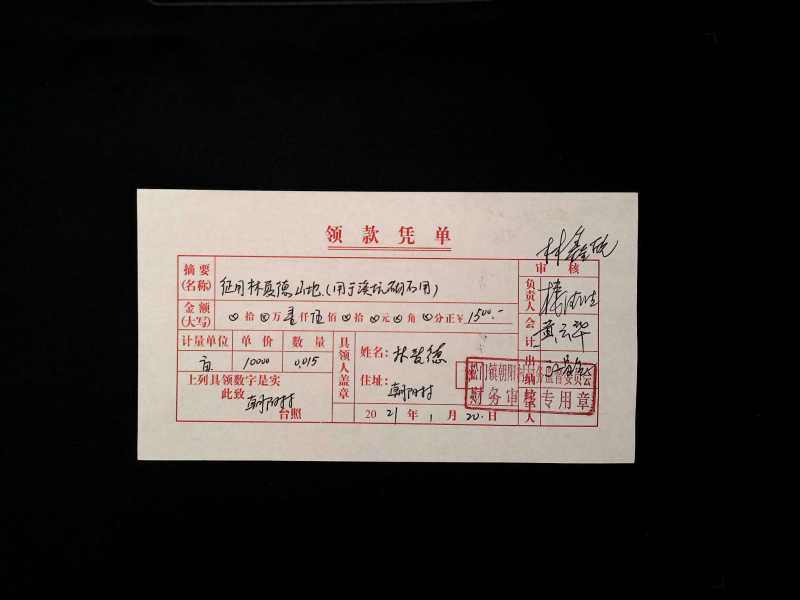 领款凭单
审核
摘要(名称) 征用林夏德山地(用于溪坑砌石用)
金额(大写) ⊗拾⊗万壹仟伍佰⊗拾⊗元⊗角⊗分正¥1500.-
负责人
会计 黄云华
计量单位 单价 数量
亩 10000 0.015
上列具领数字是实
此致 朝阳村
台照
具领人盖章
姓名:
住址: 朝阳村
2021年1月20日
出纳
松门镇朝阳村务监督委员会
财务审核专用章